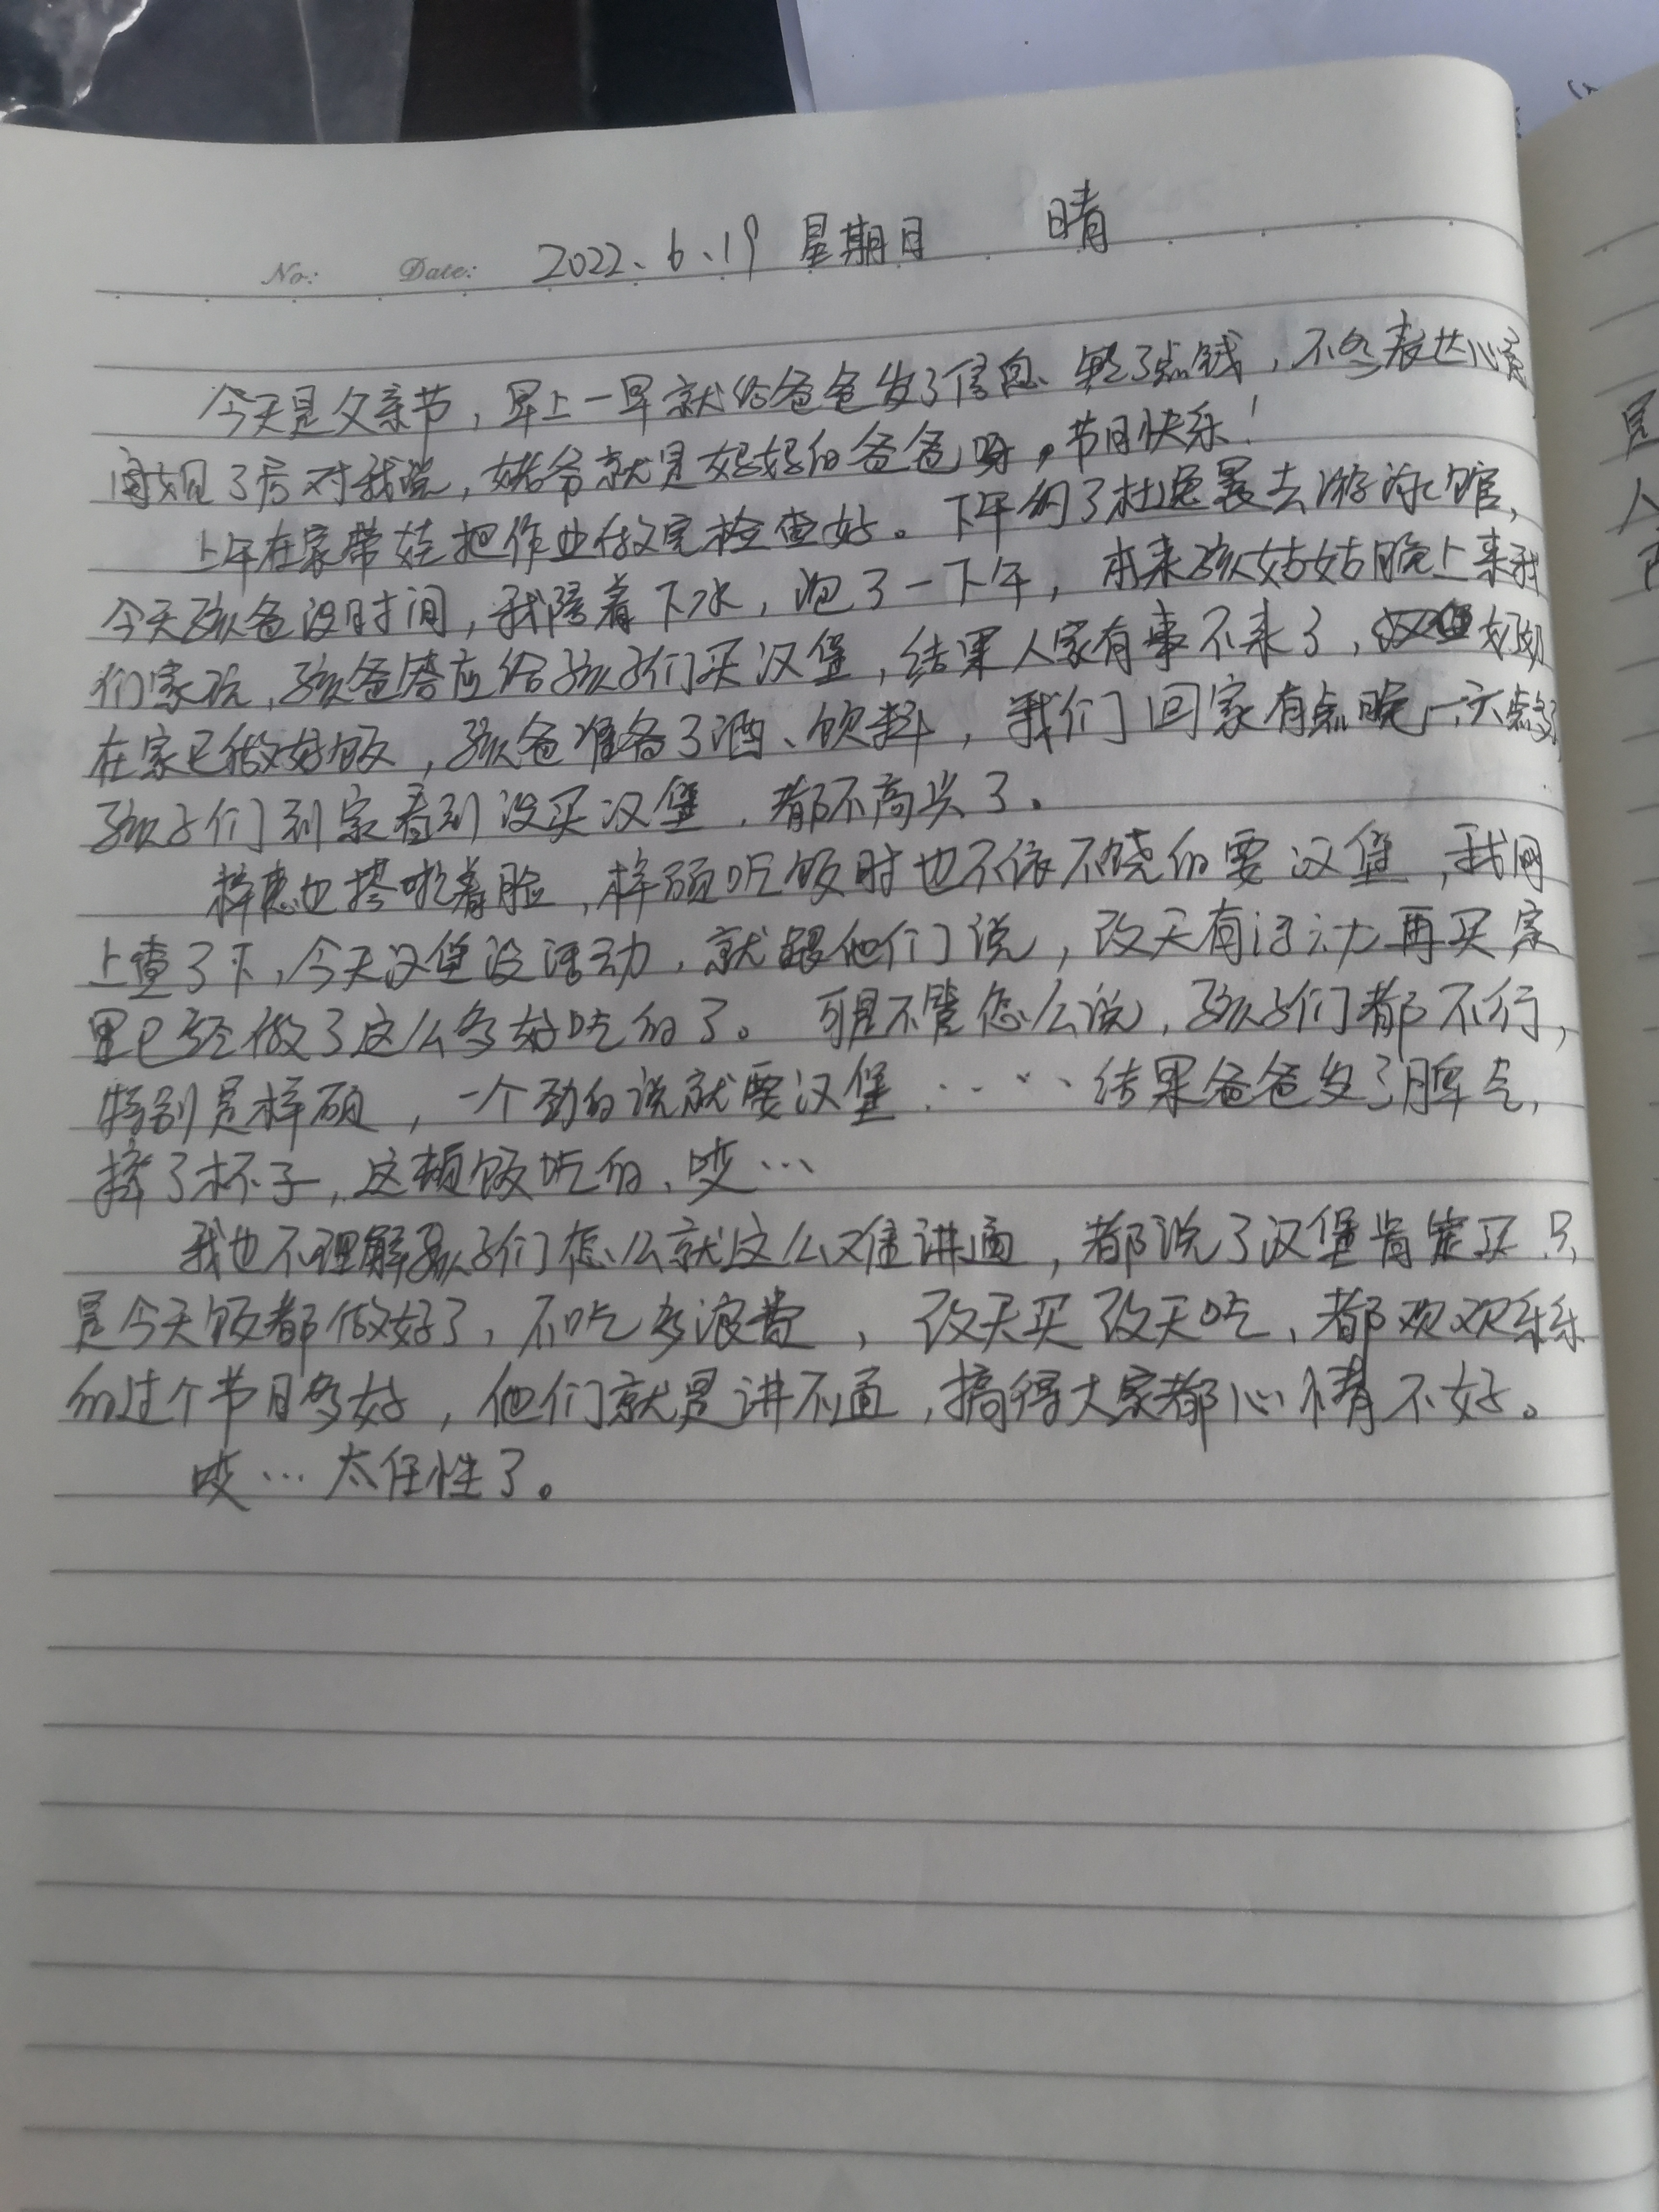 No: Date: 2022、6、19 星期日 晴
今天是父亲节，早上一早就给爸爸发了信息、 了点钱，不多表达心意
闺女见了后对我说，姥爷就是妈妈的爸爸呀。节日快乐！
上午在家带娃把作业做完检查好。下午约了杜 去游泳馆，
今天孩爸没时间，我陪着下水，泡了一下午，本来孩姑姑晚上来我
们家玩，孩爸答应给孩子们买汉堡，结果人家有事不来了， 奶奶
在家已做好饭，孩爸准备了酒、饮料，我们回家有点晚，六点多了
孩子们到家看到没买汉堡，都不高兴了。
梓 也搭啦着脸，梓硕吃饭时也不依不饶的要汉堡，我网
上查了下，今天汉堡没活动，就跟他们说，改天有活动再买家
里已经做了这么多好吃的了。可是不管怎么说，孩子们都不行，
特别是梓硕，一个劲的说就要汉堡……结果爸爸发了脾气，
摔了杯子，这顿饭吃的、哎…
我也不理解孩子们怎么就这么难讲通，都说了汉堡肯定买只
是今天饭都做好了，不吃多浪费，改天买改天吃，都欢欢乐乐
的过个节日多好，他们就是讲不通，搞得大家都心情不好。
哎…太任性了。